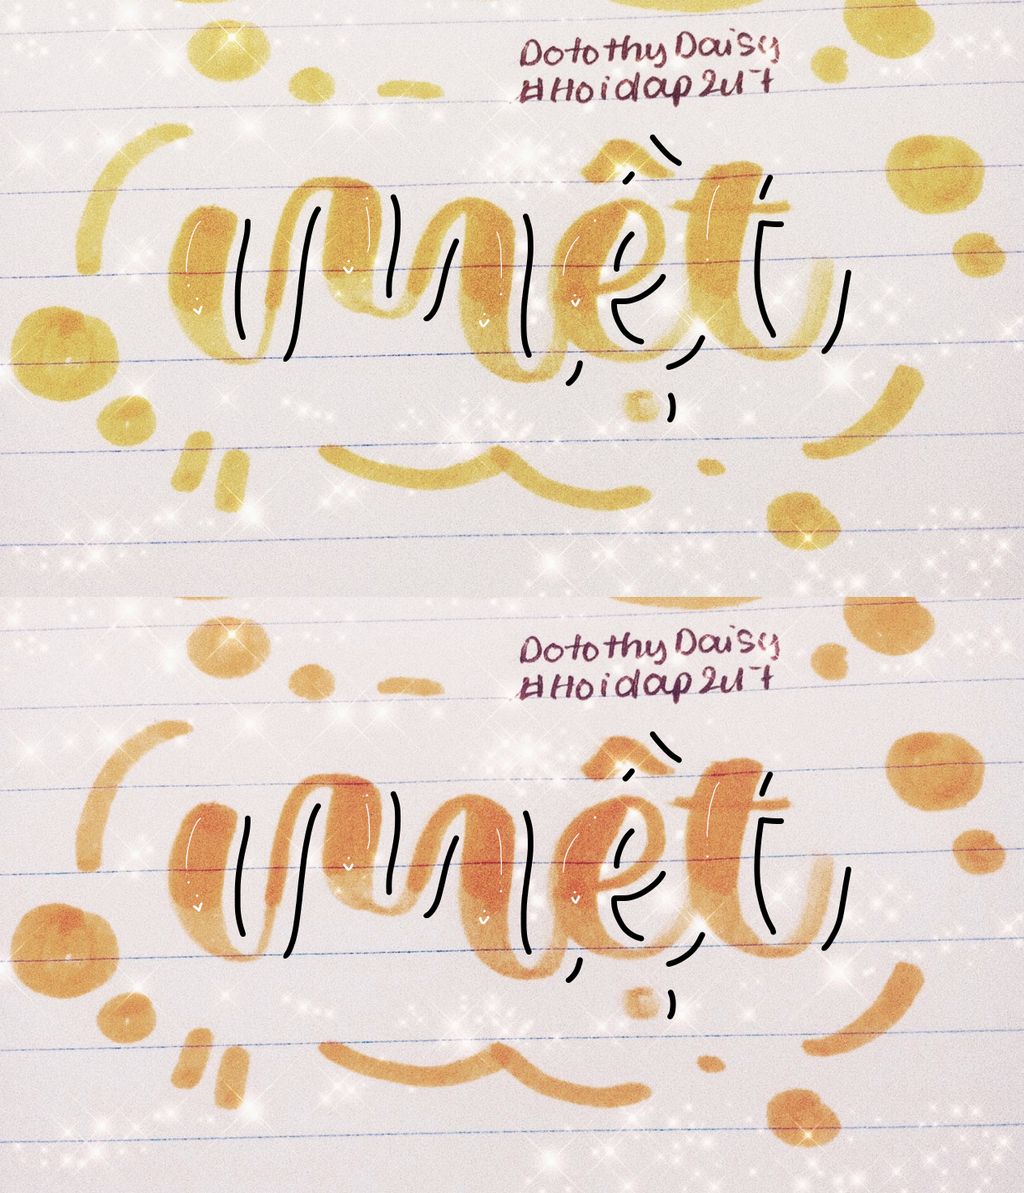 Dotothy Daisy
#Hoidap247
mệt
Dotothy Daisy
#Hoidap247
mệt